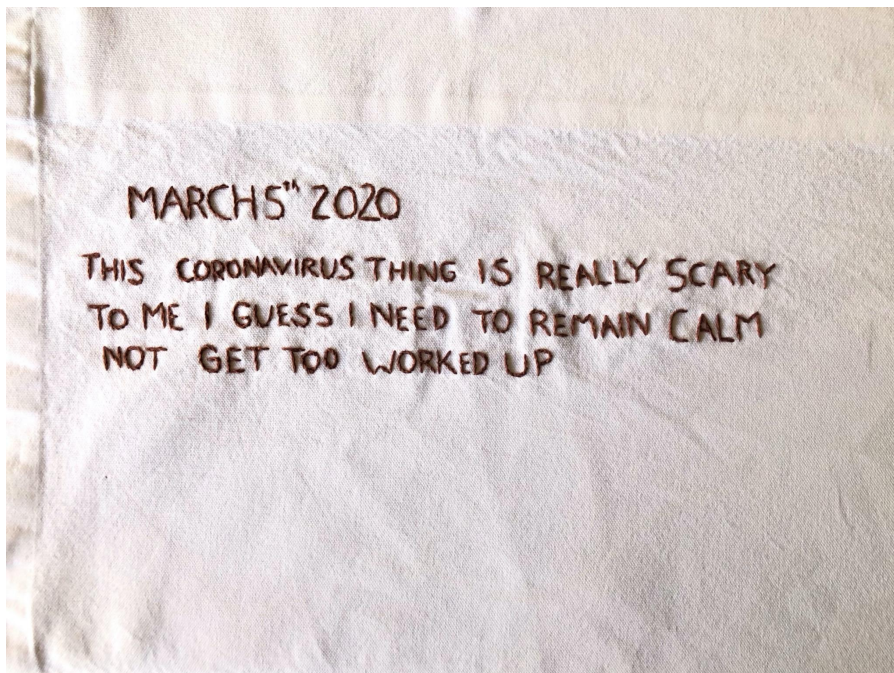 MARCH 5th 2020
THIS CORONAVIRUS THING IS REALLY SCARY
TO ME I GUESS I NEED TO REMAIN CALM
NOT GET TOO WORKED UP